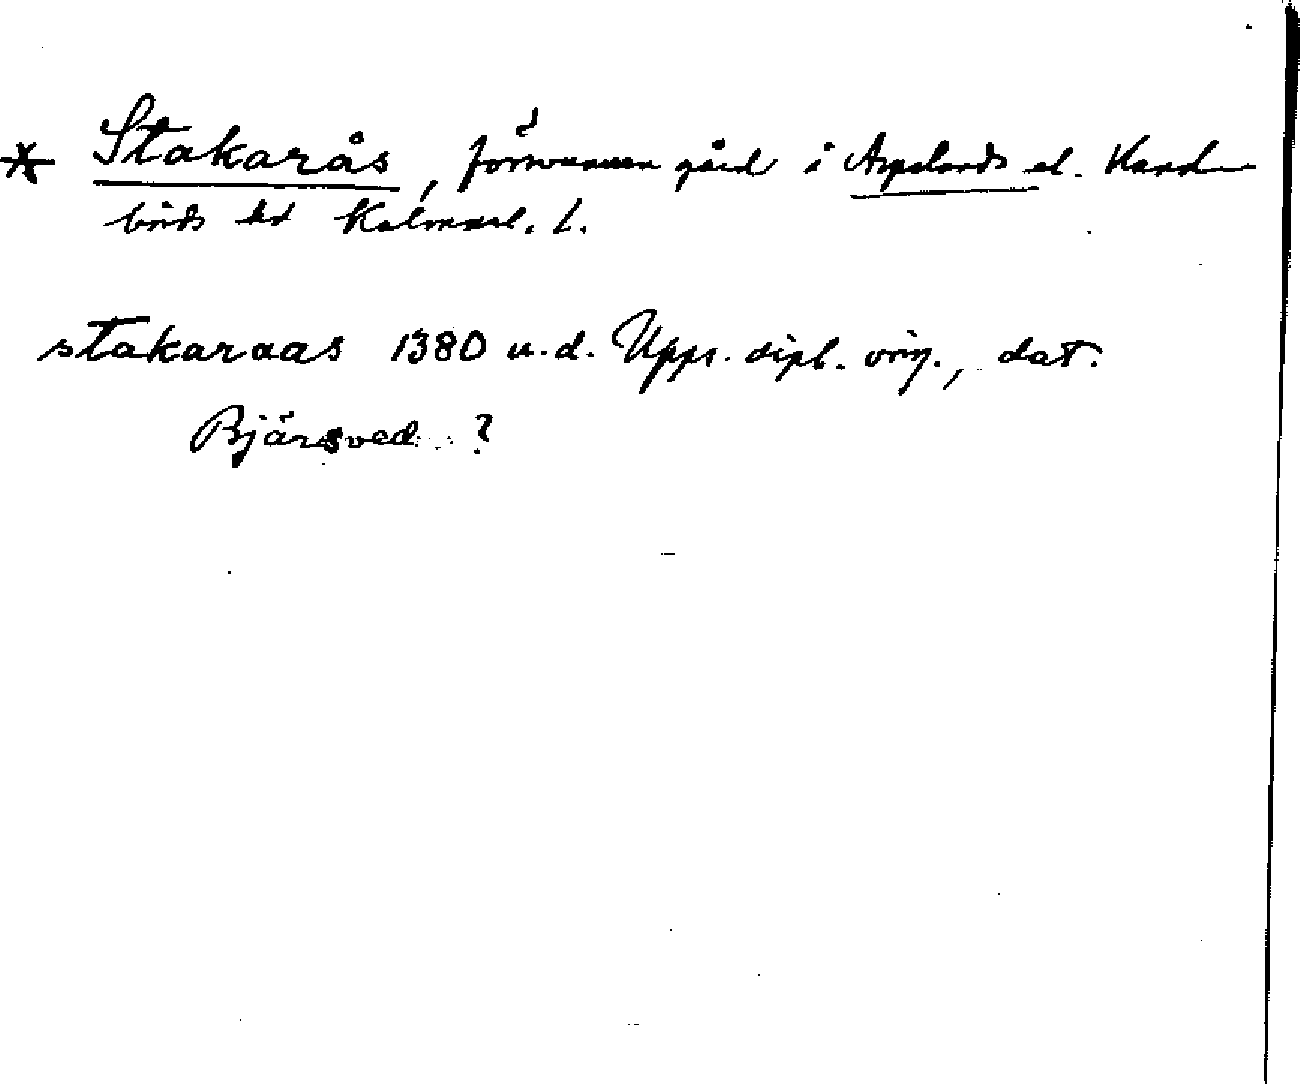 * Stakarås, försvunnen gård i Aspelands el. Hand-
börds hd Kalmarl. L.
stakaraas 1380 u.d. Upps. dipl. orig., dat.
Bjärsved ?